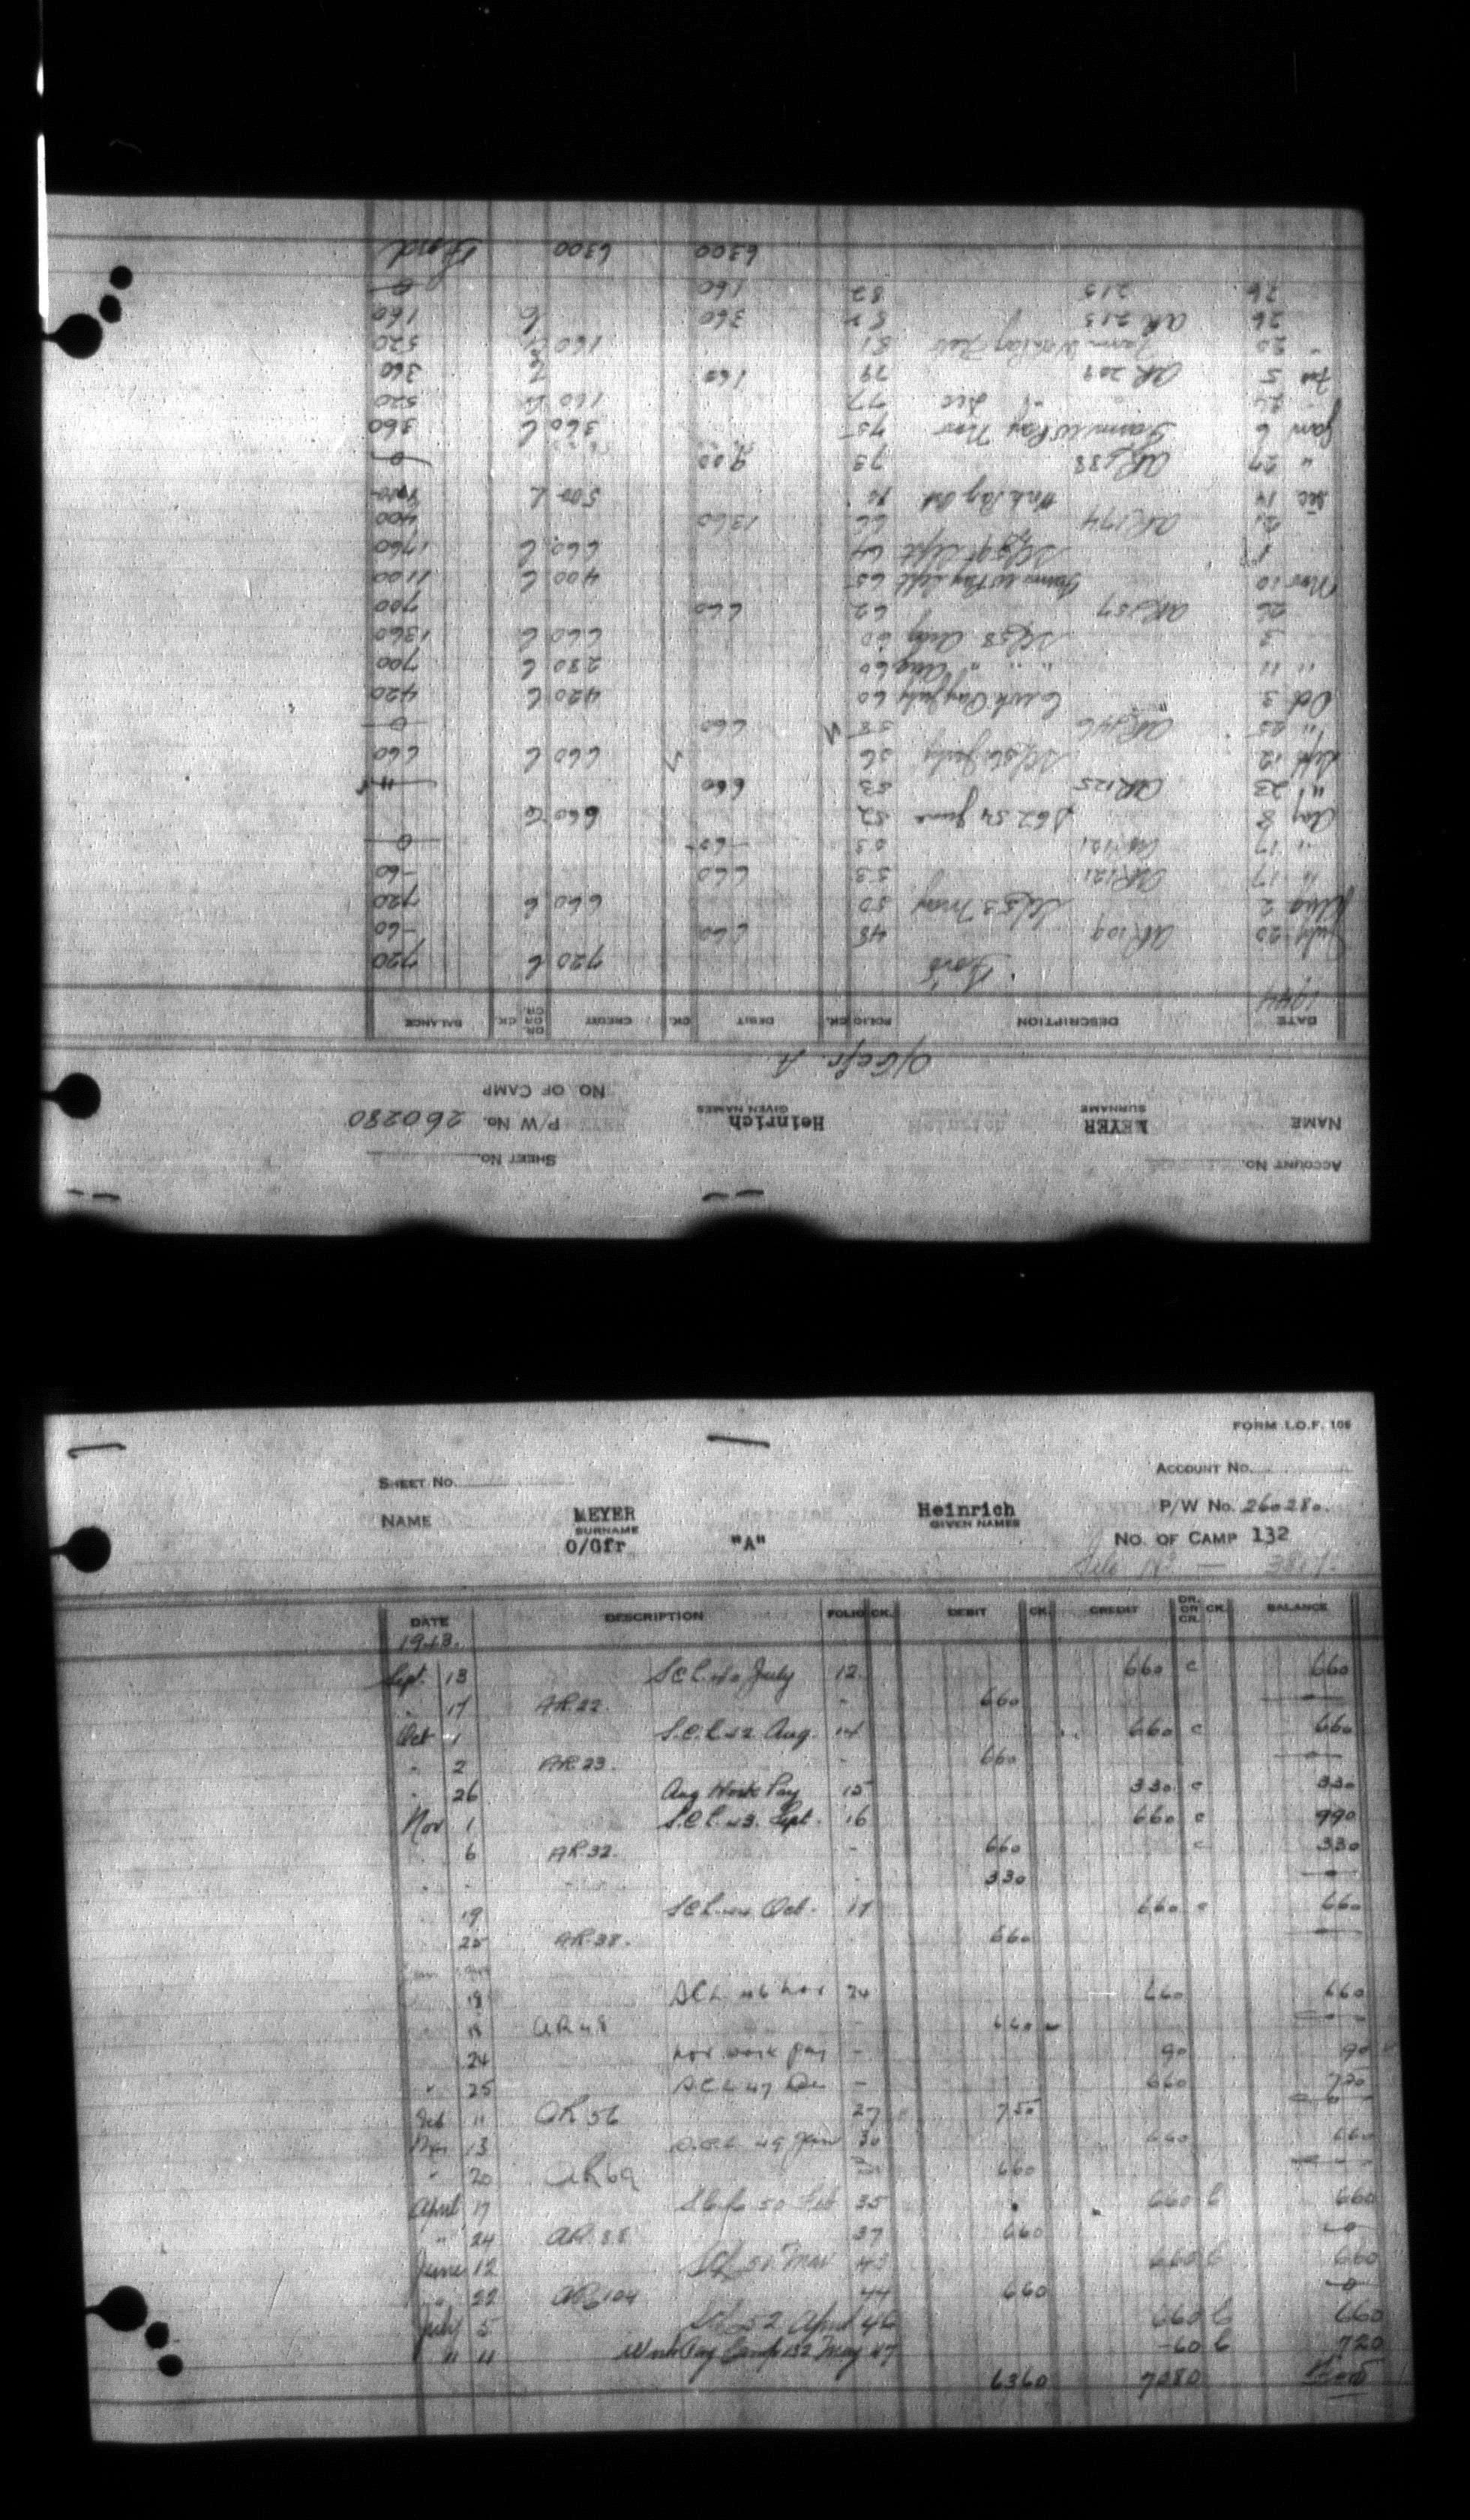 ACCOUNT No.
SHEET No.
NAME MEYER Heinrich P/W No. 260280
SURNAME GIVEN NAMES
NO. OF CAMP
O/Gefr. A
DATE DESCRIPTION FOLIO CK. DEBIT CK. CREDIT DR. OR CR. CK. BALANCE
1944
Ford 720 C 720
July 20 AR 109 48 660 -60
Aug 2 SCL 53 May 50 660 C 720
" 17 AR 121 53 660 -60
" 17 AR 121 53 -60- 0
Aug 8 54 June 52 660 C
" 23 AR 125 53 660 "
Sept 12 SCL 56 July 56 660 C 660
" 25 AR 146 58 660 0
Oct 3 Work Pay July 60 420 C 420
" 11 " " Aug 60 280 C 700
3 SCL 58 Aug 60 660 C 1360
26 AR 157 62 660 700
Nov 10 Farm Wk Pay Sept 65 400 C 1100
1 SCL 59 Sept 64 660 C 1760
21 AR 174 66 1360 400
Dec 14 Work Pay Oct 70 500 C 900
" 27 AR 188 73 900 0
Jan 6 Farm Wk Pay Nov 75 360 C 360
" " Dec 77 160 C 520
Feb 5 AR 209 79 160 360
" 20 Farm Work Pay 81 160 C 520
26 AR 215 82 360 160
26 215 82 160 0
6300 6300 Ford
FORM I.O.F. 106
SHEET No. ACCOUNT No.
NAME MEYER Heinrich P/W No. 260280.
SURNAME GIVEN NAMES
O/Gfr "A" NO. OF CAMP 132
DATE DESCRIPTION FOLIO CK. DEBIT CK. CREDIT DR. OR CR. CK. BALANCE
1943.
Sept. 13 S.C.L. 40 July 12. 660 c 660
" 17 AR 22. - 660 —0—
Oct 1 S.C.L. 42 Aug. 14 660 c 660
" 2 AR 23. - 660 —0—
" 26 Aug Work Pay 15 330 c 330
Nov 1 S.C.L. 43. Sept. 16 660 c 990
6 AR 32. - 660 c 330
" - - 330 —0—
19 SCL 44 Oct. 17 660 c 660
25 AR 38. 660 —
Jan
18 SCL 46 Nov 24 660 660
" 18 AR 48 - 660 — 0 —
24 Nov work pay - 90 90
" 25 SCL 47 Dec - 660 750
Feb 11 AR 56 27 750 — 0 —
Mar 13 S.C.L. 49 Jan 30 660 660
" 20 AR 69 660 —
April 17 SCL 50 Feb 35 660 C 660
" 24 AR 88 37 660 -0-
June 12 SCL 51 Mar 43 660 C 660
" 22 AR 104 44 660 -0-
July 5 SCL 52 April 46 660 C 660
" 11 Work Pay Camp 132 May 47 -60 C 720
6360 7080